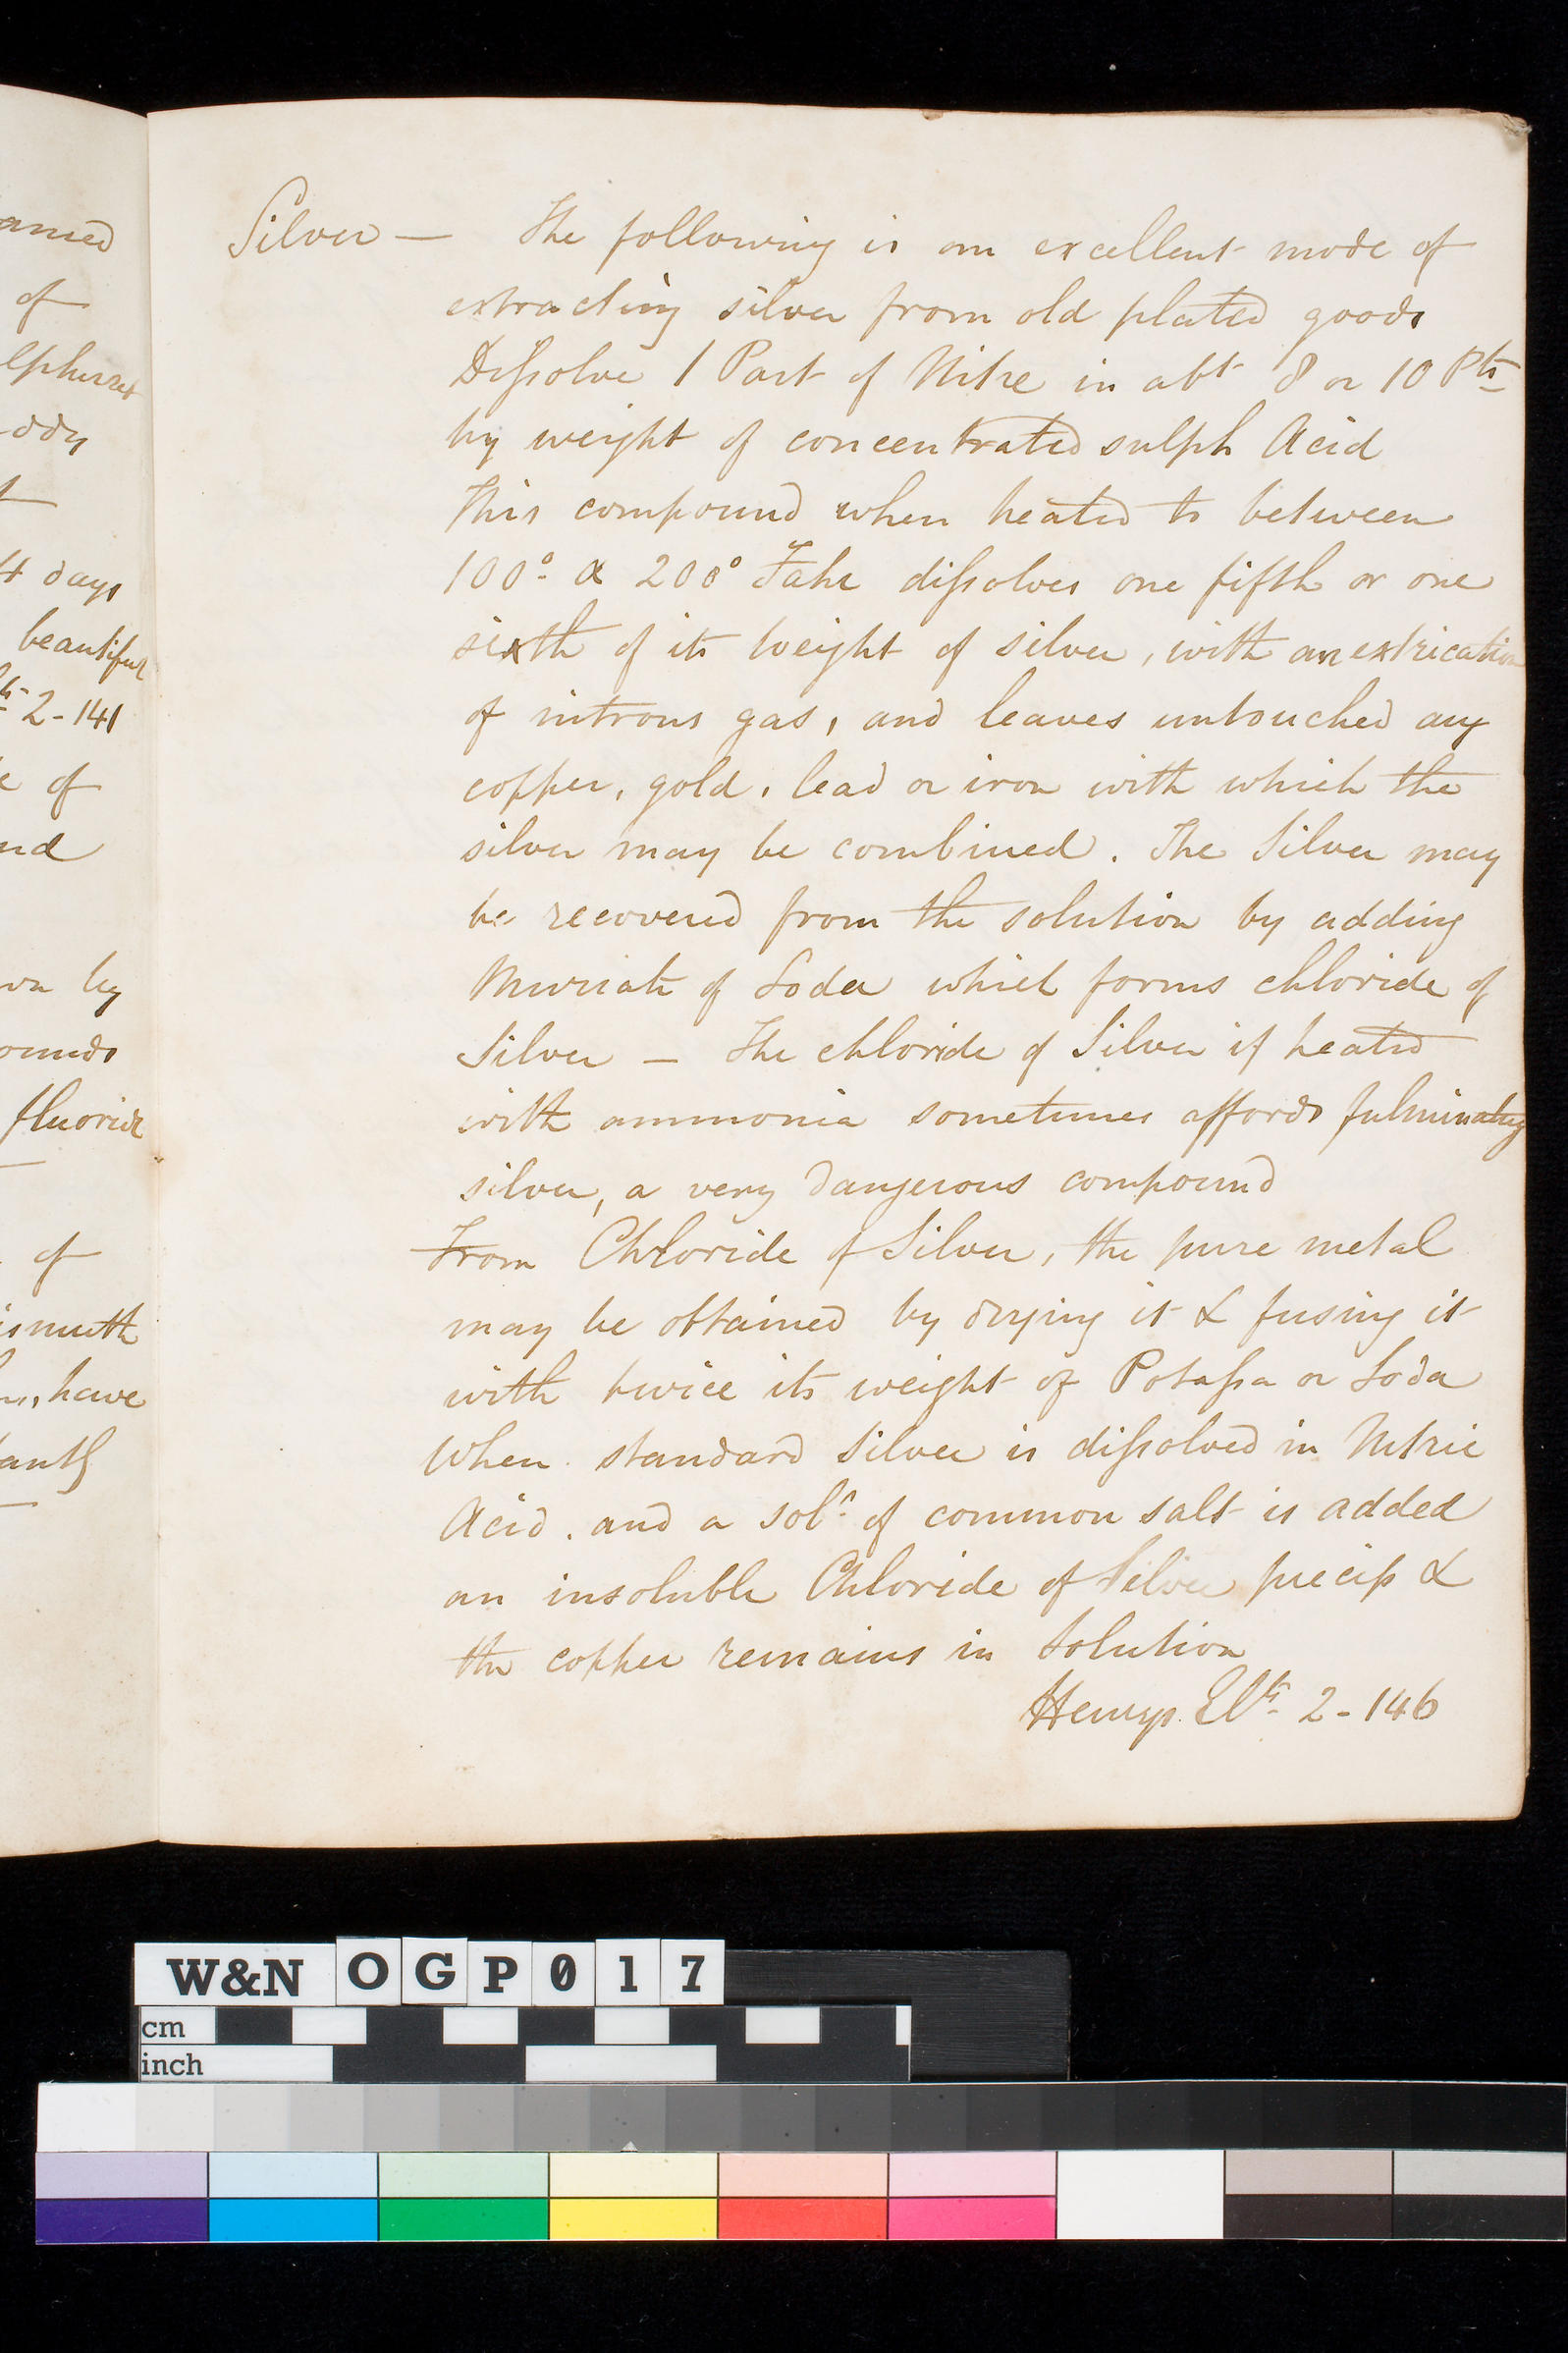 amed
of
lphuret
ddy
4 days
beautiful
2-141
of
nd
by
ounds
fluoride
of
ismuth
have
Silver — The following is an excellent mode of
extracting silver from old plated goods
Dissolve 1 Part of Nitre in abt 8 or 10 Pts
by weight of concentrated sulph Acid
This compound when heated to between
100° & 200° Fahr dissolves one fifth or one
sixth of its weight of silver, with an extrication
of nitrous gas, and leaves untouched any
copper, gold, lead or iron with which the
silver may be combined. The Silver may
be recovered from the solution by adding
Muriate of Soda which forms chloride of
Silver — The chloride of Silver if heated
with ammonia sometimes affords fulminating
silver, a very dangerous compound
From Chloride of Silver, the pure metal
may be obtained by drying it & fusing it
with twice its weight of Potassa or Soda
When standard Silver is dissolved in Nitric
Acid. and a soln of common salt is added
an insoluble Chloride of Silver precip &
the copper remains in Solution
Henrys Elts 2-146
W&N OGP017
cm
inch